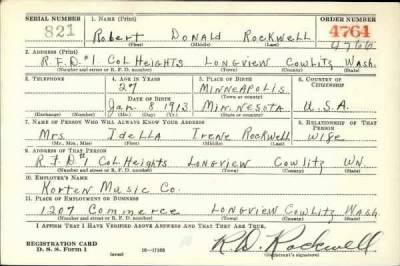 SERIAL NUMBER 1. NAME (Print) ORDER NUMBER
821 Robert Donald Rockwell 4764
(First) (Middle) (Last) 4766
2. ADDRESS (Print)
R.F.D. #1 Col Heights Longview Cowlitz Wash.
(Number and street or R. F. D. number) (Town) (County) (State)
3. TELEPHONE 4. AGE IN YEARS 5. PLACE OF BIRTH 6. COUNTRY OF CITIZENSHIP
27 Minneapolis
DATE OF BIRTH (Town or county)
Jan. 8 1913 Minnesota U.S.A.
(Exchange) (Number) (Mo.) (Day) (Yr.) (State or country)
7. NAME OF PERSON WHO WILL ALWAYS KNOW YOUR ADDRESS 8. RELATIONSHIP OF THAT PERSON
Mrs Idella Irene Rockwell Wife
(Mr., Mrs., Miss) (First) (Middle) (Last)
9. ADDRESS OF THAT PERSON
R.F.D #1 Col Heights Longview Cowlitz WN
(Number and street or R. F. D. number) (Town) (County) (State)
10. EMPLOYER'S NAME
Korten Music Co.
11. PLACE OF EMPLOYMENT OR BUSINESS
1207 Commerce Longview Cowlitz
(Number and street or R. F. D. number) (Town) (County) (State)
I AFFIRM THAT I HAVE VERIFIED ABOVE ANSWERS AND THAT THEY ARE TRUE.
REGISTRATION CARD
D. S. S. Form 1 (over) R.D. Rockwell
(Registrant's signature)